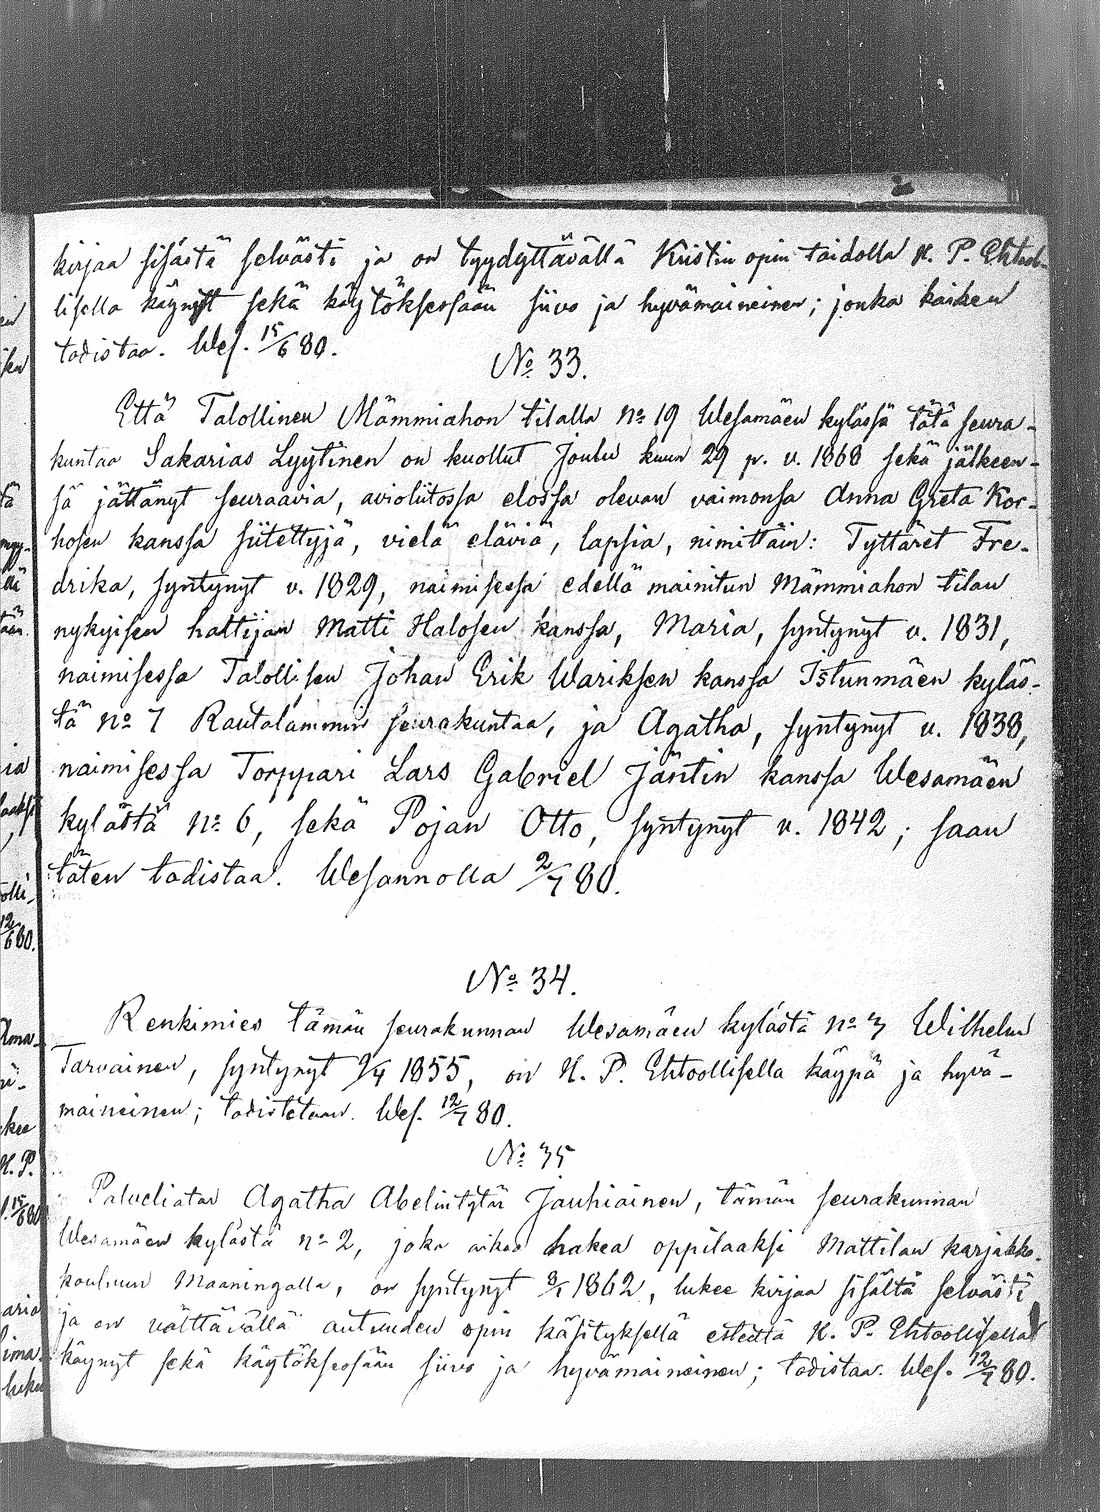 kirjaa sisästä selvästi ja on tyydyttävällä Kristin opin taidolla H. P. Ehtool-
lisella käynyt sekä käytöksessään siivo ja hyvämaineinen; jonka kaiken
todistaa. Wes. 15/6 80.
No 33.
Että Talollinen Mämmiahon tilalla no 19 Wesamäen kylässä tätä seura-
kuntaa Sakarias Lyytinen on kuollut Joulu kuun 29 p. v. 1868 sekä jälkeen-
sä jättänyt seuraavia, avioliitossa elossa olevan vaimonsa Anna Greta Kor-
hosen kanssa siitettyjä, vielä eläviä, lapsia, nimittäin: Tyttäret Fre-
drika, syntynyt v. 1829, naimisessa edellä mainitun Mämmiahon tilan
nykyisen haltijan Matti Halosen kanssa, Maria, syntynyt v. 1831,
naimisessa Talollisen Johan Erik Wariksen kanssa Istunmäen kyläs-
tä no 7 Rautalammin seurakuntaa, ja Agatha, syntynyt v. 1838,
naimisessa Torppari Lars Gabriel Jäntin kanssa Wesamäen
kylästä no 6, sekä Pojan Otto, syntynyt v. 1842; saan
täten todistaa. Wesannolla 2/7 80.
No 34.
Renkimies tämän seurakunnan Wesamäen kylästä no 3 Wilhelm
Tarvainen, syntynyt 9/4 1855, on H. P. Ehtoollisella käypä ja hyvä-
maineinen; todistetaan. Wes. 12/7 80.
No 35
Palveliatar Agatha Abelintytär Jauhiainen, tämän seurakunnan
Wesamäen kylästä no 2, joka aikoo hakea oppilaaksi Mattilan karjakko-
kouluun Maaningalla, on syntynyt 3/1 1862, lukee kirjaa sisältä selvästi
ja on välttävällä autuuden opin käsityksellä esteittä H. P. Ehtoollisella
käynyt sekä käytöksessään siivo ja hyvämaineinen; todistaa. Wes. 12/7 80.